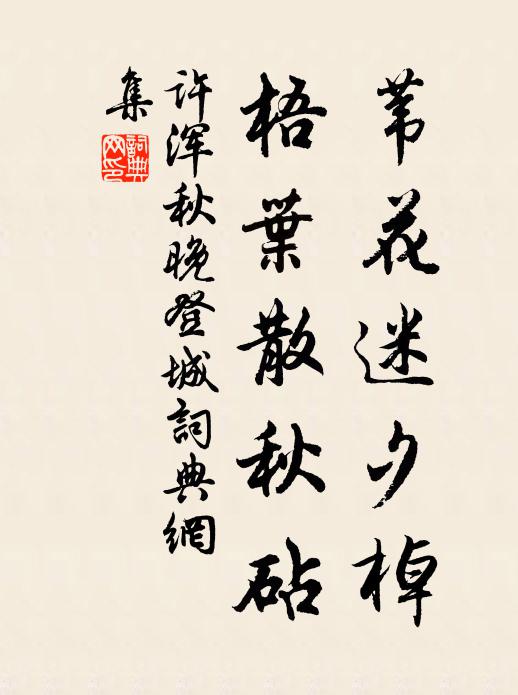 苇花迷夕棹
梧葉散秋砧
许浑秋晚登城詞典網
集
詞典网印